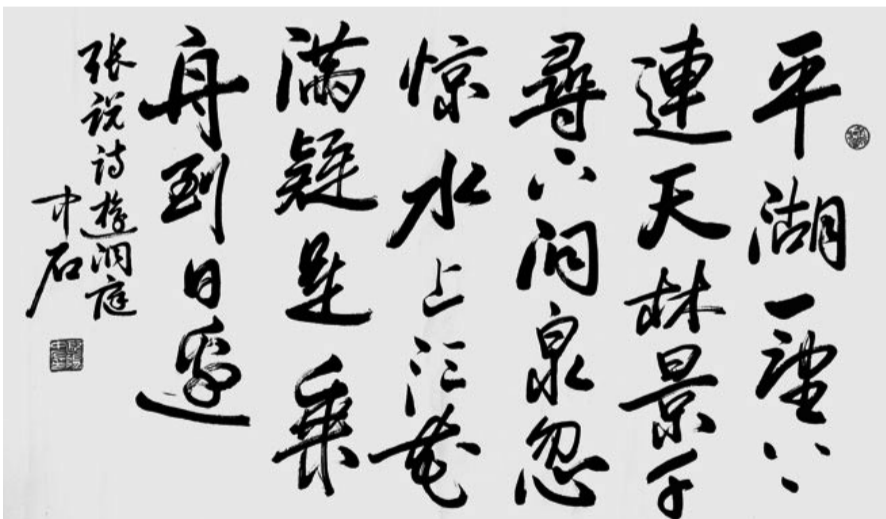 平湖一望上
連天林景千
尋下洞泉忽
惊水上江花
满疑是乘
舟到日邊
张说诗遊洞庭
中石